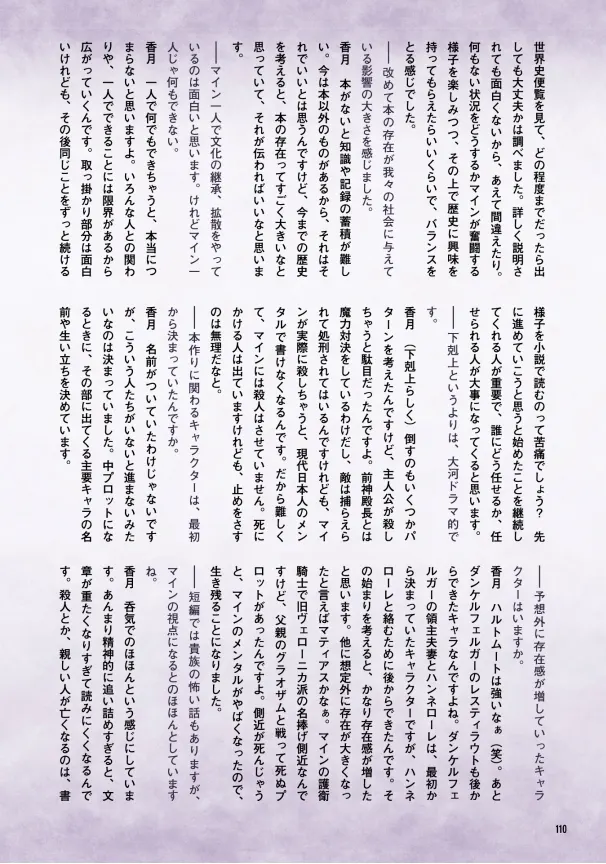 世界史便覧を見て、どの程度までだったら出
しても大丈夫かは調べました。詳しく説明さ
れても面白くないから、あえて間違えたり。
何もない状況をどうするかマインが奮闘する
様子を楽しみつつ、その上で歴史に興味を
持ってもらえたらいいくらいで、バランスを
とる感じでした。
――改めて本の存在が我々の社会に与えて
いる影響の大きさを感じました。
香月　本がないと知識や記録の蓄積が難し
い。今は本以外のものがあるから、それはそ
れでいいとは思うんですけど、今までの歴史
を考えると、本の存在ってすごく大きいなと
思っていて、それが伝わればいいなと思いま
す。
――マイン一人で文化の継承、拡散をやって
いるのは面白いと思います。けれどマイン一
人じゃ何もできない。
香月　一人で何でもできちゃうと、本当につ
まらないと思いますよ。いろんな人との関わ
りや、一人でできることには限界があるから
広がっていくんです。取っ掛かり部分は面白
いけれども、その後同じことをずっと続ける
様子を小説で読むのって苦痛でしょう？　先
に進めていこうと思うと始めたことを継続し
てくれる人が重要で、誰にどう任せるか、任
せられる人が大事になってくると思います。
――下剋上というよりは、大河ドラマ的で
す。
香月　（下剋上らしく）倒すのもいくつかパ
ターンを考えたんですけど、主人公が殺し
ちゃうと駄目だったんですよ。前神殿長とは
魔力対決をしているわけだし、敵は捕らえら
れて処刑されてはいるんですけれども、マイ
ンが実際に殺しちゃうと、現代日本人のメン
タルで書けなくなるんです。だから難しく
て、マインには殺人はさせていません。死に
かける人は出ていますけれども、止めをさす
のは無理だなと。
――本作りに関わるキャラクターは、最初
から決まっていたんですか。
香月　名前がついていたわけじゃないです
が、こういう人たちがいないと進まないみた
いなのは決まっていました。中プロットにな
るときに、その部に出てくる主要キャラの名
前や生い立ちを決めています。
――予想外に存在感が増していったキャラ
クターはいますか。
香月　ハルトムートは強いなぁ（笑）。あと
ダンケルフェルガーのレスティラウトも後か
らできたキャラなんですよね。ダンケルフェ
ルガーの領主夫妻とハンネローレは、最初か
ら決まっていたキャラクターですが、ハンネ
ローレと絡むために後からできたんです。そ
の始まりを考えると、かなり存在感が増した
と思います。他に想定外に存在が大きくなっ
たと言えばマティアスかなぁ。マインの護衛
騎士で旧ヴェローニカ派の名捧げ側近なんで
すけど、父親のグラオザムと戦って死ぬプ
ロットがあったんですよ。側近が死んじゃう
と、マインのメンタルがやばくなったので、
生き残ることになりました。
――短編では貴族の怖い話もありますが、
マインの視点になるとのほほんとしています
ね。
香月　呑気でのほほんという感じにしていま
す。あんまり精神的に追い詰めすぎると、文
章が重たくなりすぎて読みにくくなるんで
す。殺人とか、親しい人が亡くなるのは、書
110